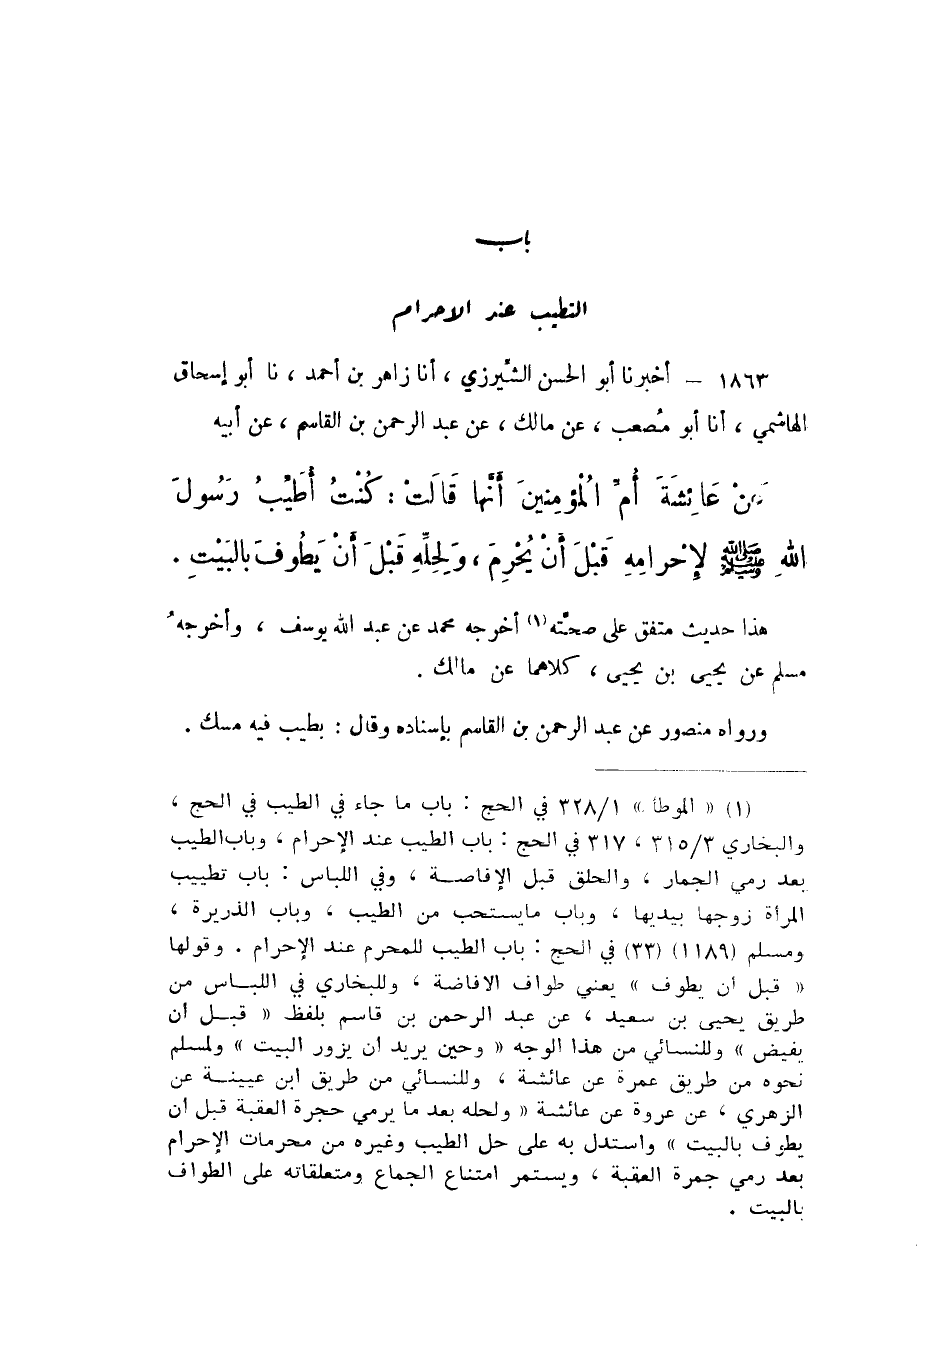 باب
التطيب عند الاحرام
١٨٦٣ – أخبرنا أبو الحسن الشِّيرزي ، أنا زاهر بن أحمد ، نا أبو إسحاق
الهاشمي ، أنا أبو مُصعب ، عن مالك ، عن عبد الرحمن بن القاسم ، عن أبيه
عَنْ عَائِشَةَ أُمِّ الْمُؤمِنينَ أَنَّها قَالَتْ : كُنْتُ أُطَيِّبُ رَسُولَ
اللهِ ﷺ لإِحْرامِهِ قَبْلَ أَنْ يُحْرِمَ ، وَلِحِلِّهِ قَبْلَ أَنْ يَطُوفَ بالبَيْتِ .
هذا حديث متفق على صحته(١) أخرجه محمد عن عبد الله يوسف ، وأخرجه
مسلم عن يحيى بن يحيى ، كلاهما عن مالك .
ورواه منصور عن عبد الرحمن بن القاسم بإسناده وقال : بطيب فيه مسك .
(١) « الموطأ » ٣٢٨/١ في الحج : باب ما جاء في الطيب في الحج ،
والبخاري ٣١٥/٣ ، ٣١٧ في الحج : باب الطيب عند الإحرام ، وباب الطيب
بعد رمي الجمار ، والحلق قبل الإفاصة ، وفي اللباس : باب تطييب
المرأة زوجها بيديها ، وباب مايستحب من الطيب ، وباب الذريرة ،
ومسلم (١١٨٩) (٣٣) في الحج : باب الطيب للمحرم عند الإحرام . وقولها
« قبل أن يطوف » يعني طواف الافاضة ، وللبخاري في اللباس من
طريق يحيى بن سعيد ، عن عبد الرحمن بن قاسم بلفظ « قبل أن
يفيض » وللنسائي من هذا الوجه « وحين يريد أن يزور البيت » ولمسلم
نحوه من طريق عمرة عن عائشة ، وللنسائي من طريق ابن عيينة عن
الزهري ، عن عروة عن عائشة « ولحله بعد ما يرمي حجرة العقبة قبل أن
يطوف بالبيت » واستدل به على حل الطيب وغيره من محرمات الإحرام
بعد رمي جمرة العقبة ، ويستمر امتناع الجماع ومتعلقاته على الطواف
بالبيت .